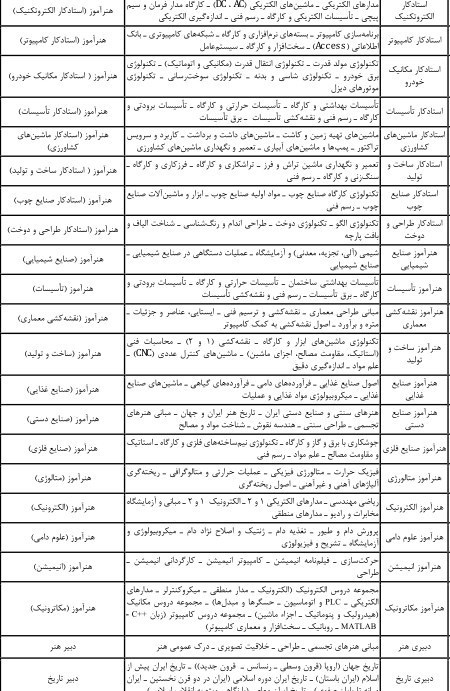 استادکار الکتروتکنیک
مدارهای الکتریکی ـ ماشین‌های الکتریکی (DC ، AC) ـ کارگاه مدار فرمان و سیم پیچی ـ تأسیسات الکتریکی و کارگاه ـ رسم فنی ـ اندازه‌گیری الکتریکی
هنرآموز (استادکار الکتروتکنیک)
استادکار کامپیوتر
برنامه‌سازی کامپیوتر ـ بسته‌های نرم‌افزاری و کارگاه ـ شبکه‌های کامپیوتری ـ بانک اطلاعاتی (Access) ـ سخت‌افزار و کارگاه ـ سیستم‌عامل
هنرآموز (استادکار کامپیوتر)
استادکار مکانیک خودرو
تکنولوژی مولد قدرت ـ تکنولوژی انتقال قدرت (مکانیکی و اتوماتیک) ـ تکنولوژی برق خودرو ـ تکنولوژی شاسی و بدنه ـ تکنولوژی سوخت‌رسانی ـ تکنولوژی موتورهای دیزل
هنرآموز ( استادکار مکانیک خودرو)
استادکار تأسیسات
تأسیسات بهداشتی و کارگاه ـ تأسیسات حرارتی و کارگاه ـ تأسیسات برودتی و کارگاه ـ رسم فنی و نقشه‌کشی تأسیسات ـ برق تأسیسات
هنرآموز (استادکار تأسیسات)
استادکار ماشین‌های کشاورزی
ماشین‌های تهیه زمین و کاشت ـ ماشین‌های داشت و برداشت ـ کاربرد و سرویس تراکتور ـ پمپ‌ها و ماشین‌های آبیاری ـ تعمیر و نگهداری ماشین‌های کشاورزی
هنرآموز (استادکار ماشین‌های کشاورزی)
استادکار ساخت و تولید
تعمیر و نگهداری ماشین تراش و فرز ـ تراشکاری و کارگاه ـ فرزکاری و کارگاه ـ سنگ‌زنی و کارگاه ـ رسم فنی
هنرآموز ( استادکار ساخت و تولید)
استادکار صنایع چوب
تکنولوژی کارگاه صنایع چوب ـ مواد اولیه صنایع چوب ـ ابزار و ماشین‌آلات صنایع چوب ـ رسم فنی
هنرآموز (استادکار صنایع چوب)
استادکار طراحی و دوخت
تکنولوژی الگو ـ تکنولوژی دوخت ـ طراحی اندام و رنگ‌شناسی ـ شناخت الیاف و بافت پارچه
هنرآموز (استادکار طراحی و دوخت)
هنرآموز صنایع شیمیایی
شیمی (آلی، تجزیه، معدنی) و آزمایشگاه ـ عملیات دستگاهی در صنایع شیمیایی ـ صنایع شیمیایی
هنرآموز (صنایع شیمیایی)
هنرآموز تأسیسات
تأسیسات بهداشتی ساختمان ـ تأسیسات حرارتی و کارگاه ـ تأسیسات برودتی و کارگاه ـ برق تأسیسات ـ رسم فنی و نقشه‌کشی تأسیسات
هنرآموز (تأسیسات)
هنرآموز نقشه‌کشی معماری
مبانی طراحی معماری ـ نقشه‌کشی و ترسیم فنی ـ ایستایی، عناصر و جزئیات ـ متره و برآورد ـ اصول نقشه‌کشی به کمک کامپیوتر
هنرآموز (نقشه‌کشی معماری)
هنرآموز ساخت و تولید
تکنولوژی ماشین‌های ابزار و کارگاه ـ نقشه‌کشی (۱ و ۲) ـ محاسبات فنی (استاتیک، مقاومت مصالح، اجزای ماشین) ـ ماشین‌های کنترل عددی (CNC) ـ علم مواد ـ اندازه‌گیری دقیق
هنرآموز (ساخت و تولید)
هنرآموز صنایع غذایی
اصول صنایع غذایی ـ فرآورده‌های دامی ـ فرآورده‌های گیاهی ـ ماشین‌های صنایع غذایی ـ میکروبیولوژی مواد غذایی و عملیات
هنرآموز (صنایع غذایی)
هنرآموز صنایع دستی
هنرهای سنتی و صنایع دستی ایران ـ تاریخ هنر ایران و جهان ـ مبانی هنرهای تجسمی ـ طراحی سنتی ـ هندسه نقوش ـ شناخت مواد و مصالح
هنرآموز (صنایع دستی)
هنرآموز صنایع فلزی
جوشکاری با برق و گاز و کارگاه ـ تکنولوژی نیم‌ساخته‌های فلزی و کارگاه ـ استاتیک و مقاومت مصالح ـ علم مواد ـ رسم فنی
هنرآموز (صنایع فلزی)
هنرآموز متالورژی
فیزیک حرارت ـ متالورژی فیزیکی ـ عملیات حرارتی و متالوگرافی ـ ریخته‌گری آلیاژهای آهنی و غیرآهنی ـ اصول ریخته‌گری
هنرآموز (متالوژی)
هنرآموز الکترونیک
ریاضی مهندسی ـ مدارهای الکتریکی ۱ و ۲ ـ الکترونیک ۱ و ۲ ـ مبانی و آزمایشگاه مخابرات و رادیو ـ مدارهای منطقی
هنرآموز (الکترونیک)
هنرآموز علوم دامی
پرورش دام و طیور ـ تغذیه دام ـ ژنتیک و اصلاح نژاد دام ـ میکروبیولوژی و آزمایشگاه ـ تشریح و فیزیولوژی
هنرآموز (علوم دامی)
هنرآموز انیمیشن
حرکت‌سازی ـ فیلم‌نامه انیمیشن ـ کامپیوتر انیمیشن ـ کارگردانی انیمیشن ـ طراحی
هنرآموز (انیمیشن)
هنرآموز مکاترونیک
مجموعه دروس الکترونیک (الکترونیک ـ مدار منطقی ـ میکروکنترلر ـ مدارهای الکتریکی ـ PLC و اتوماسیون ـ حسگرها و مبدل‌ها) ـ مجموعه دروس مکانیک (هیدرولیک و پنوماتیک ـ اجزاء ماشین) ـ مجموعه دروس کامپیوتر (زبان C++ ـ MATLAB ـ روباتیک ـ سخت‌افزار و معماری کامپیوتر)
هنرآموز (مکاترونیک)
دبیری هنر
مبانی هنرهای تجسمی ـ طراحی ـ خلاقیت تصویری ـ درک عمومی هنر
دبیر هنر
دبیری تاریخ
تاریخ جهان (اروپا (قرون وسطی ـ رنسانس ـ قرون جدید)) ـ تاریخ ایران پیش از اسلام (ایران باستان) ـ تاریخ ایران دوره اسلامی (ایران در دو قرن نخستین ـ ایران
دبیر تاریخ